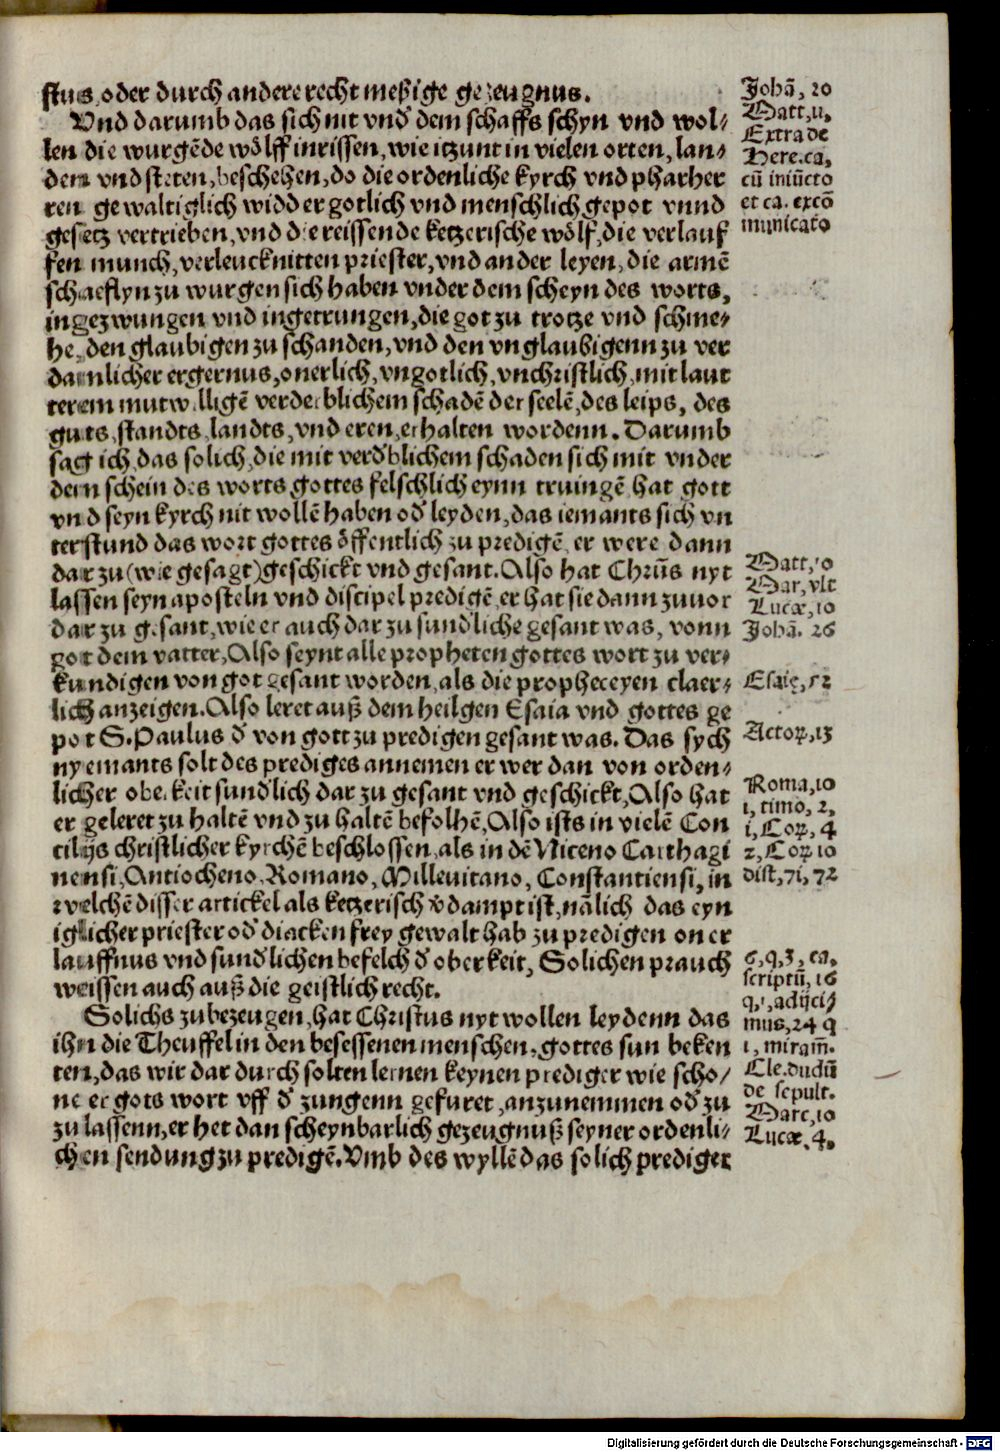 stus, oder durch andere recht meßige gezeugnus.
Vnd darumb das sich nit vnd̕ dem schaffs schyn vnd wol⸗
len die wurgēde wölff inrissen, wie itzunt in vielen orten, lan⸗
den vnd steten, beschehen, do die ordenliche kyrch vnd pharher
ren gewaltiglich widder gotlich vnd menschlich gepot vnnd
gesetz vertrieben, vnd die reissende ketzerische wölf, die verlauf
fen munch, verleucknitten priester, vnd ander leyen, die armē
schaeflyn zu wurgen sich haben vnder dem scheyn des worts,
ingezwungen vnd ingetrungen, die got zu trotze vnd schme⸗
he, den glaubigen zu schanden, vnd den vnglaubigenn zu ver
damlicher ergernus, onerlich, vngotlich, vnchristlich, mit laut
terem mutwilligē verderblichem schadē der seelē, des leips, des
guts, standts, landts, vnd eren, erhalten wordenn. Darumb
sag ich, das solich, die mit verd̕blichem schaden sich mit vnder
dem schein des worts gottes felschlich eynn truingē, hat gott
vnd seyn kyrch nit wollē haben od̕ leyden, das iemants sich vn
terstund das wort gottes öffentlich zu predigē, er were dann
dar zu (wie gesagt) geschickt vnd gesant. Also hat Chrūs nyt
lassen seyn aposteln vnd discipel predigē, er hat sie dann zuuor
dar zu gesant, wie er auch dar zu sund̕liche gesant was, vonn
got dem vatter, Also seynt alle propheten gottes wort zu ver⸗
kundigen von got gesant worden, als die propheceyen claer⸗
lich anzeigen. Also leret auß dem heilgen Esaia vnd gottes ge
pot S. Paulus d̕ von gott zu predigen gesant was. Das sych
nyemants solt des prediges annemen er wer dan von orden⸗
licher oberkeit sund̕lich dar zu gesant vnd geschickt, Also hat
er geleret zu haltē vnd zu haltē befolhē, Also ists in vielē Con
cilijs christlicher kyrchē beschlossen, als in dē Niceno Carthagi
nensi, Antiocheno, Romano, Millevitano, Constantiensi, in
welchē disser artickel als ketzerisch v̕dampt ist, nālich das eyn
iglicher priester od̕ diacken frey gewalt hab zu predigen on er
lauffnus vnd sund̕lichen befelch d̕ oberkeit, Solichen prauch
weissen auch auß die geistlich recht.
Solichs zubezeugen, hat Christus nyt wollen leydenn das
ihn die Theuffel in den besessenen menschen, gottes sun beken
ten, das wir dar durch solten lernen keynen prediger wie scho⸗
ne er gots wort vff d̕ zungenn gefuret, anzunemmen od̕ zu
zu lassenn, er het dan scheynbarlich gezeugnuß seyner ordenli⸗
chen sendung zu predigē. Vmb des wyllē das solich prediger
Johā, 20
Matt, 11,
Extra de
Here. ca,
cū iniūcto
et ca. excō
municato
Matt, 10
Mar, vlt
Lucæ, 10
Johā. 26
Esaię, 52
Actoꝝ, 13
Roma, 10
1, timo, 2,
1, Coꝝ, 4
2, Coꝝ 10
dist, 71, 72
6, q, 3, ca,
scriptū, 16
q, 1, adijci⸗
mus, 24 q
1, miram̄.
Cle. dudū
de sepult.
Marc, 10
Lucæ, 4,
Digitalisierung gefördert durch die Deutsche Forschungsgemeinschaft - DFG